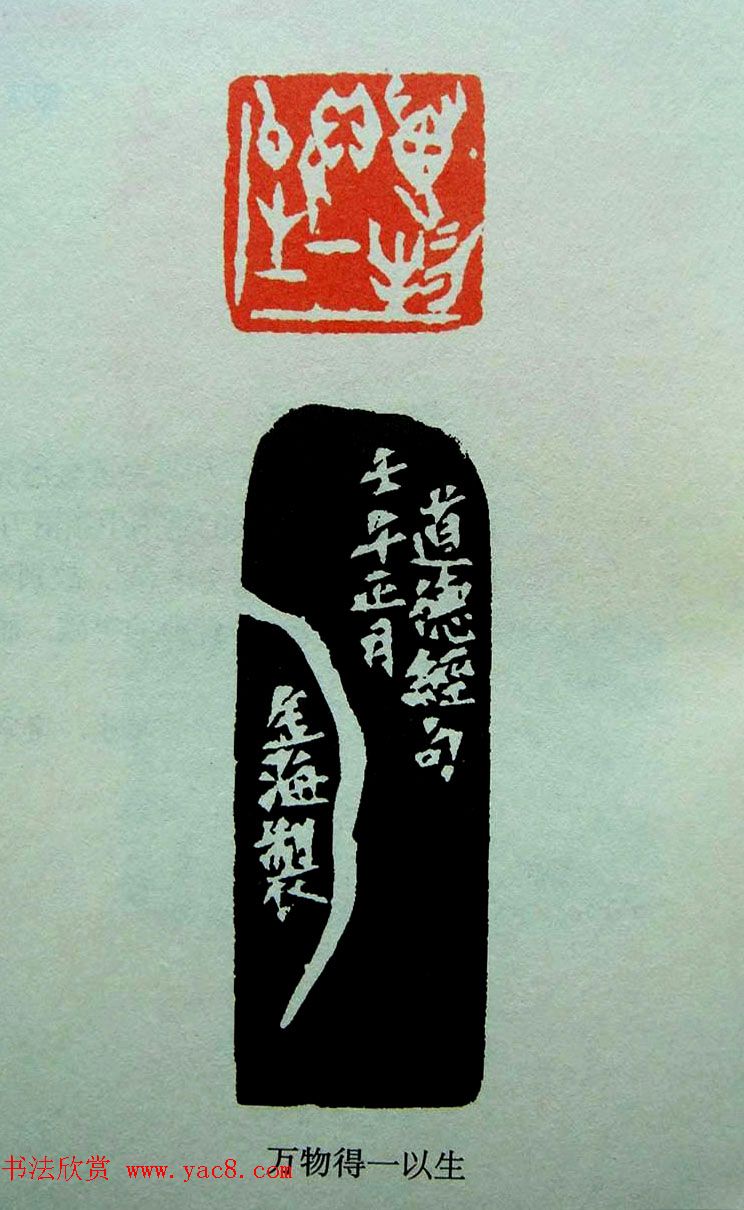 萬物
得一
以生
道德經句
壬午正月
金海製
万物得一以生
书法欣赏 www.yac8.com